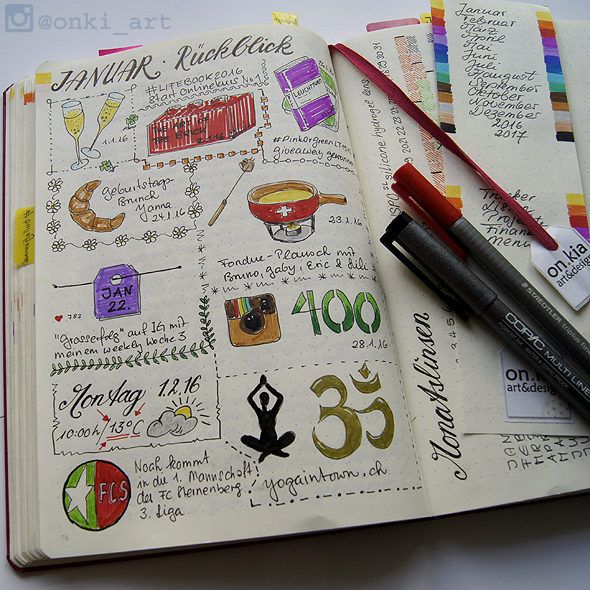 @onki_art
JANUAR · Rückblick
#LIFEBOOK2016
Start Onlinekurs No 1
1.1.16
THE ART OF
LEUCHTTURM
#PinkorgreenLT1917
Giveaway gewonnen
Geburtstags-
Brunch
Yanna
24.1.16
23.1.16
Fondue-Plausch mit
Bruno, Gaby, Eric & Lili
JAN
22.
782
"Grosserfolg" auf IG mit
meinem weekly Woche 3
400
28.1.16
Montag 1.2.16
10:00h/13°C
yogaintown.ch
FCS
Noch kommt
in die 1. Mannschaft!
des FC Meinenberg
3. Liga
76
Silicone Hydrogel
Monatslinsen
Januar
Februar
März
April
Mai
Juni
Juli
August
September
Oktober
November
Dezember
2016
2017
Tracker
Projekte
Finanz
Menu
on.kia
art&design
STAEDTLER triplus
COPIC MULTI LINER
on.
art&design